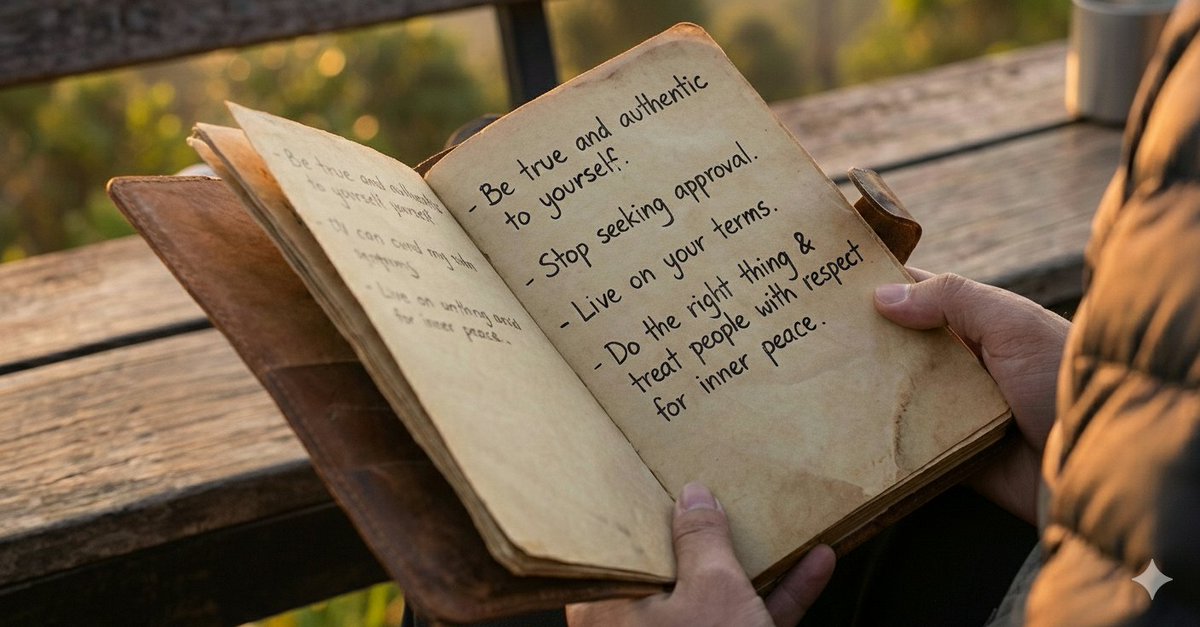 - Be true and authentic
to yourself, yourself
- Live on
for inner peace..
- Be true and authentic
to yourself.
- Stop seeking approval.
- Live on your terms.
- Do the right thing &
treat people with respect
for inner peace.